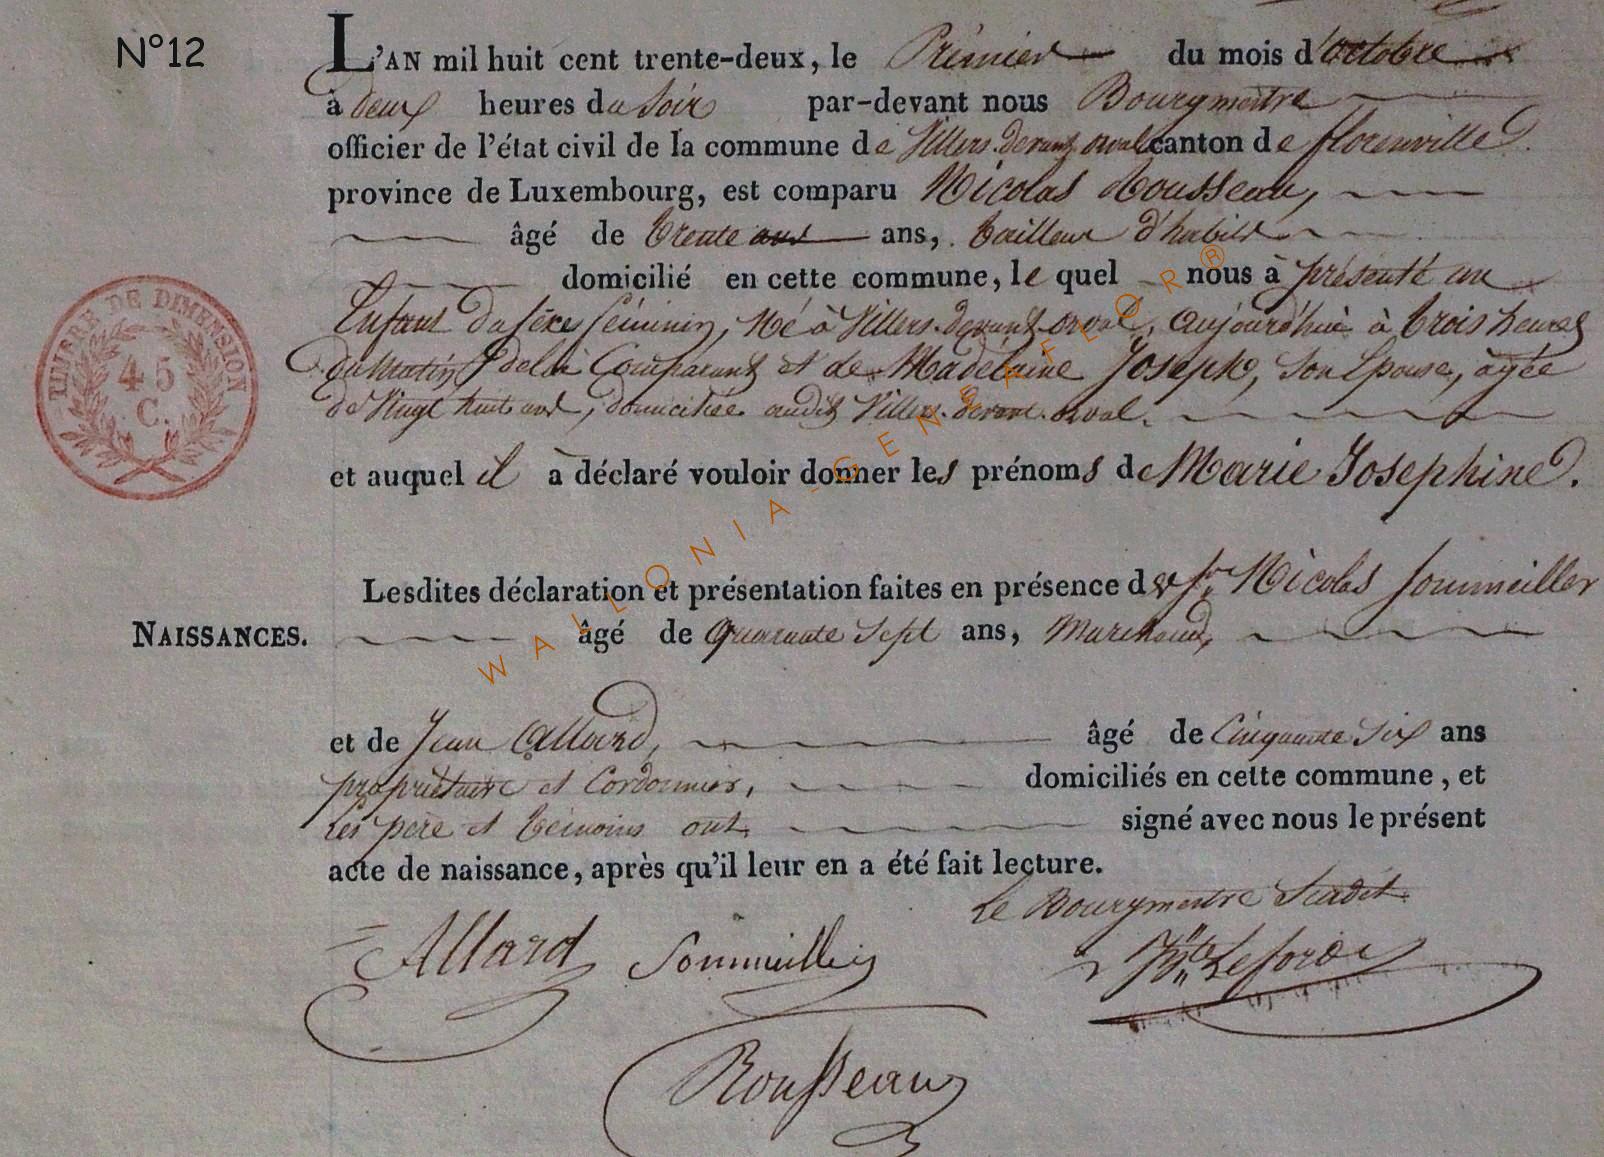 N°12
L'AN mil huit cent trente-deux, le Prémier du mois d'octobre
à deux heures du Soir par-devant nous Bourgmestre
officier de l'état civil de la commune de Villers-devant-orval canton de florenville
province de Luxembourg, est comparu Nicolas Rousseau,
âgé de trente ans ans, tailleur d'habits
domicilié en cette commune, le quel nous à présenté un
Enfant du séxe féminin, Né à Villers-devant-orval, aujourd'hui à trois heures
du Matin, de lui Comparant et de Madelaine Joseph, Son Epouse, agée
de Vingt huit ans, domiciliée audit Villers-devant-orval.
et auquel il à déclaré vouloir donner les prénoms de Marie Josephine.
TIMBRE DE DIMENSION
45
C.
Lesdites déclaration et présentation faites en présence de Sr. Nicolas Sommeiller
NAISSANCES.
âgé de Quarante Sept ans, Marchand,
et de Jean Allard, âgé de Cinquante Six ans
propriétaire et Cordonnier, domiciliés en cette commune, et
Les père et témoins ont signé avec nous le présent
acte de naissance, après qu'il leur en a été fait lecture.
Le Bourgmestre Susdit
Allard Sommeiller
Rousseau
WALLONIA-GENEAFLOR®